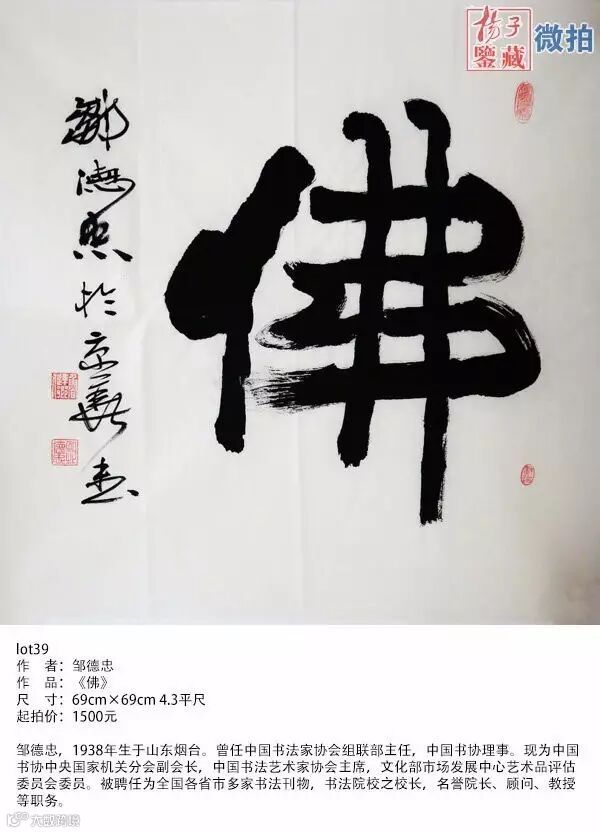 杨子
鉴藏
微拍
佛
邹德忠於京华书
lot39
作　者：邹德忠
作　品：《佛》
尺　寸：69cm×69cm 4.3平尺
起拍价：1500元
邹德忠，1938年生于山东烟台。曾任中国书法家协会组联部主任，中国书协理事。现为中国
书协中央国家机关分会副会长，中国书法艺术家协会主席，文化部市场发展中心艺术品评估
委员会委员。被聘任为全国各省市多家书法刊物，书法院校之校长，名誉院长、顾问、教授
等职务。
大威商镜